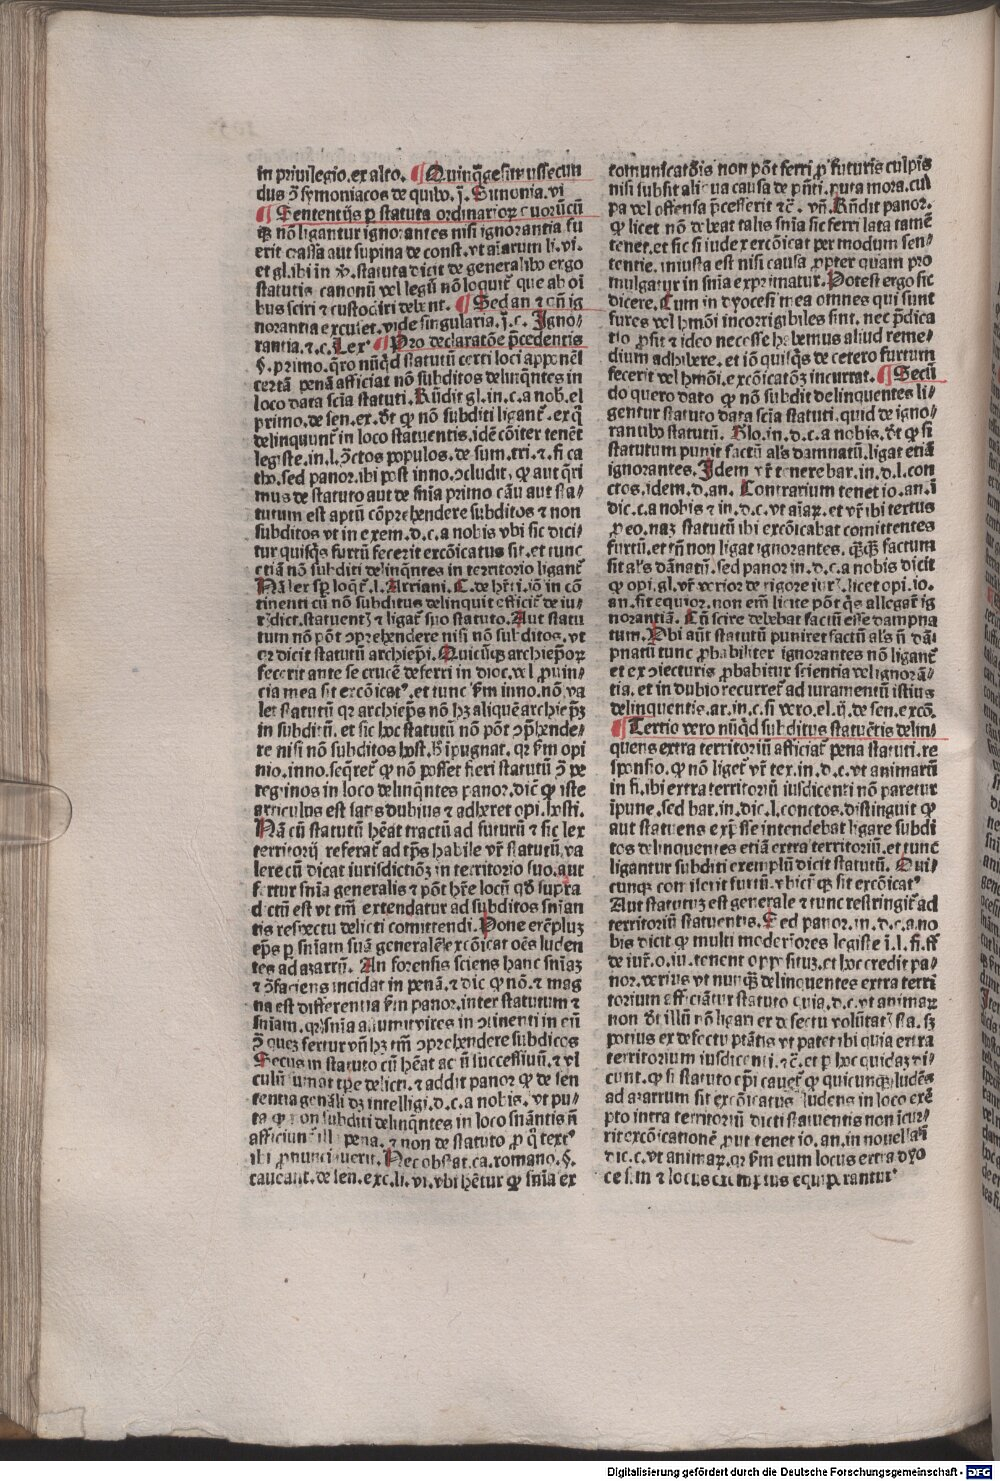 in priuilegio.ex alto. ¶ Quinq̃gesimussecun
dus ꝯ̃ symoniacos de quibꝰ. j. Sunonia. vi
¶ Sententijs ꝑ statuta ordinarioꝝ quorũcũ
qꝫ nõ ligantur ignorantes nisi ignorantia fu
erit crassa aut supina de const. vt aĩarum li. vi.
et gl. ibi in ꝟ. statuta dicit de generalibꝰ ergo
statutis canonũ vel legũ nõ loquit̃ que ab oĩ
bus sciri ⁊ custodiri debent. ¶ Sed an ⁊ cũ ig
norantia excuset. vide singularia. j. c. Igno⸗
rantia. ⁊. c. Lex ¶ Pro declaratõe p̃cedentis
§. primo. q̃ro nũqͥd statutũ certi loci apponẽs
certã penã afficiat nõ subditos delinq̃ntes in
loco data scĩa statuti. Rñdit gl. in. c. a nob. el
primo. de sen. ex. ðt ꝙ nõ subditi ligant̃. ex q̃
delinquunt̃ in loco statuentis. idẽ cõiter tenẽt
legiste. in. l. ꝯctos populos. de sum. tri. ⁊. fi ca
tho. sed panor. ibi post inno. ꝯcludit, ꝙ aut q̃ri
mus de statuto aut de sñia primo cãu aut sta⸗
tutum est aptũ cõprehendere subditos ⁊ non
subditos vt in exem. d. c. a nobis vbi sic dici⸗
tur quisq̃s furtũ fecerit excõicatus sit. et tunc
etiã nõ subditi delinq̃ntes in territorio ligant̃
Nã lex sꝑ loqͭ. l. Arriani. C. de hẽti. iõ in cõ
tinenti cũ nõ subditus delinquit efficit̃ de iu⸗
rẜdict. statuentẜ ⁊ ligat̃ suo statuto. Aut statu
tum nõ põt ꝯprehendere nisi nõ subditos. vt
cr dicit statutũ archiep̃i. Quicũqꝫ archiep̃oꝝ
fecerit ante se crucẽ deferri in dioc. vel ꝓuin⸗
cia mea sit excõicatꝰ. et tunc ẜm inno. nõ. va
let statutũ qꝛ archiep̃s nõ hꝫ aliquẽ archiep̃ꝫ
in subditũ. et sic hoc statutũ nõ põt ꝯp̃hende⸗
re nisi nõ subditos host. h̃ ĩpugnat. qꝛ ẜm opi
nio. inno. seq̃ret̃ ꝙ nõ posset fieri statutũ ꝯ̃ pe
regrinos in loco delinq̃ntes panor. dic̃ ꝙ iste
articulus est satis dubius ⁊ adheret opi. hosti.
Nã cũ statutũ hẽat tractũ ad futurũ ⁊ sic lex
territorij referat̃ ad tp̃s habile vr̃ statutũ, va
lere cũ dicat iurisdictiõꝫ in territorio suo. aut
fertur sñia generalis ⁊ põt hr̃e locũ qð supra
dictũ est vt tm̃ extendatur ad subditos sñian
tis respectu delicti comittendi. Pone exẽpluꝫ
ep̃s ꝑ sñiam suã generalẽ excõicat oẽs luden
tes ad azartũ. An forensis sciens hanc sñiaꝫ
⁊ ꝯ̃faciens incidat in penã. ⁊ dic ꝙ nõ. ⁊ mag
na est differentia ẜm panor. inter statutum ⁊
sñiam. qꝛ sñia assumit vires in ꝯtinenti in eũ
ꝯ̃ quẽ fertur vñ hꝫ tm̃ ꝯprehendere subditos
Secus in statuto cũ hẽat ac ñ successiuũ. ⁊ vi
culũ sumat tp̃e delicti. ⁊ addit panor ꝙ de sen
tentia genãli dꝫ intelligi. d. c. a nobis. vt pu⸗
ta ꝙ non subditi delinq̃ntes in loco sñiãtis ñ
afficiunt̃ illa pena. ⁊ non de statuto ꝓ q̃ textꝰ
ibi ꝓnunciauerit. Nec obstat. ca. romano. §.
caueant. de sen. exc. li. vi. vbi hẽtur ꝙ sñia ex
comunicatõis non põt ferri ꝓ futuris culpis
nisi subsit aliqua causa de pñti. puta mora. cul
pa vel offensa p̃cesserit ⁊c̃. vñ. Rñdit panor.
ꝙ licet nõ debeat talis sñia sic ferri lata tamẽ
tenet. et sic si iudex excõicat per modum sen⸗
tentie. iniusta est nisi causa ꝓpter quam pro
mulgatur in sñia exprimatur. Potest ergo sic
dicere. Cum in dyocesi mea omnes qui sunt
fures vel hmõi incorrigibiles sint. nec p̃dica
tio ꝓsit ⁊ ideo necesse habemus aliud reme⸗
dium adhibere. et iõ quisq̃s de cetero furtum
fecerit vel hmõi. excõicatõꝫ incurrat. ¶ Secũ
do quero dato ꝙ nõ subditi delinquentes li⸗
gentur statuto data scĩa statuti. quid de igno⸗
rantibꝰ statutũ. Glo. in. d. c. a nobis. ðt ꝙ si
statutum punit factũ als̃ damnatũ. ligat etiã
ignorantes. Idem vr̃ tenere bar. in. d. l. con
ctos. idem. d. an. Contrarium tenet io. an. ĩ
dic. c. a nobis ⁊ in. d. c. vt aĩaꝝ. et vr̃ ibi textus
ꝓ eo. naꝫ statutũ ibi excõicabat comittentes
furtũ. et tñ non ligat ignorantes. q̃qꝫ factum
sit als̃ dãnatũ. sed panor in. d. c. a nobis dicit
ꝙ opi. gl. vr̃ verior de rigore iurẜ. licet opi. io.
an. sit equior. non em̃ licite põt q̃s allegat̃ ig
norantiã. Cũ scire debebat factũ esse dampna
tum. Vbi aũt statutũ puniret factũ als̃ ñ dã⸗
pnatũ tunc ꝓbabiliter ignorantes nõ ligant̃
et ex ꝯiecturis ꝓbabitur scientia vel ignorã⸗
tia. et in dubio recurret̃ ad iuramentũ istius
delinquentis. ar. in. c. si vero. el. ij. de sen. excõ.
¶ Tertio vero nũqͥd subditus statuẽtis delin⸗
quens extra territoriũ afficiat̃ pena statuti. re
sponsio. ꝙ nõ liget̃ vr̃ tex. in. d. c. vt animarũ
in fi. ibi extra territoriũ iusdicenti nõ paretur
ĩpune. sed bar. in. dic. l. conctos. distinguit ꝙ
aut statuens exp̃sse intendebat ligare subdi
tos delinquentes etiã extra territoriũ. et tunc
ligantur subditi exemplũ dicit statutũ. Qui⸗
cunqꝫ comiserit furtũ. vbicũqꝫ sit excõicatꝰ
Aut statutuꝫ est generale ⁊ tunc restringit̃ ad
territoriũ statuentis. Sed panor. in. d. c. a no
bis dicit ꝙ multi moderiores legiste ĩ. l. fi. ff
de iur̃. o. iu. tenent oppositũꝫ. et hoc credit pa⸗
nor. verius vt nunq̃ delinquentes extra terri
torium efficiãtur statuto quia. d. c. vt animaꝝ
non ðt illũ nõ ligari ex defectu volũtatẜ sta. sꝫ
potius ex defectu ptãtis vt patet ibi quia extra
territorium iusdicenti. ⁊c̃. et ꝑ hoc quidaꝫ di⸗
cunt. ꝙ si statuto ep̃i cauet̃ ꝙ quicunqꝫ ludẽs
ad azarrum sit excõicatus ludens in loco exẽ
pto intra territoriũ dicti statuentis non ĩcur⸗
rit excõicationẽ ꝓut tenet io. an. in nouella ĩ
dic. c. vt animaꝝ. qꝛ ẜm eum locus extra dyo
cesim ⁊ locus exemptus equiparantur
Digitalisierung gefördert durch die Deutsche Forschungsgemeinschaft - DFG